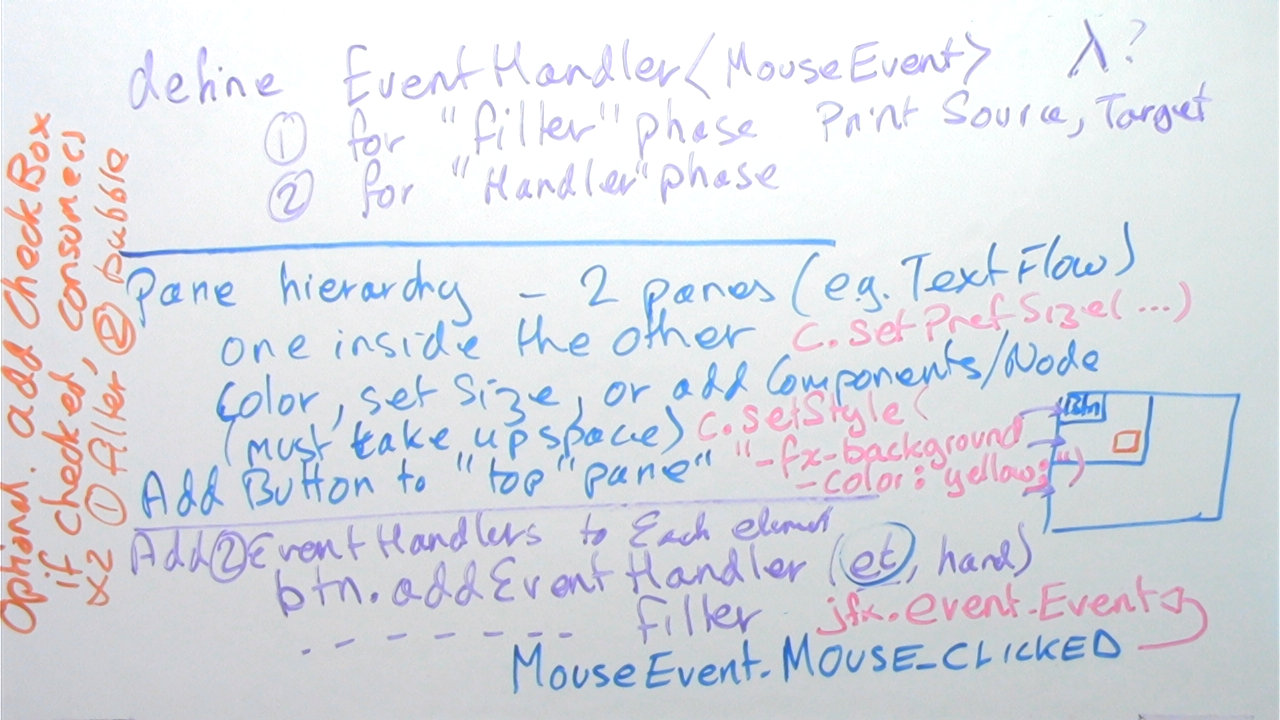 define EventHandler<MouseEvent> λ?
① for "filter" phase Print Source, Target
② for "Handler" phase
Pane hierarchy - 2 panes (e.g. TextFlow)
one inside the other c.setPrefSize(...)
color, set size, or add Components/Node
(must take up space) c.setStyle(
"-fx-background
-color: yellow;")
Add Button to "top" pane"
Btn
Add ② EventHandlers to Each element
btn.addEventHandler (et, hand)
- - - - - - - - Filter jfx.event.Event
MouseEvent.MOUSE_CLICKED
Optional: add CheckBox
if checked, consume()
x2 ① filter ② bubble